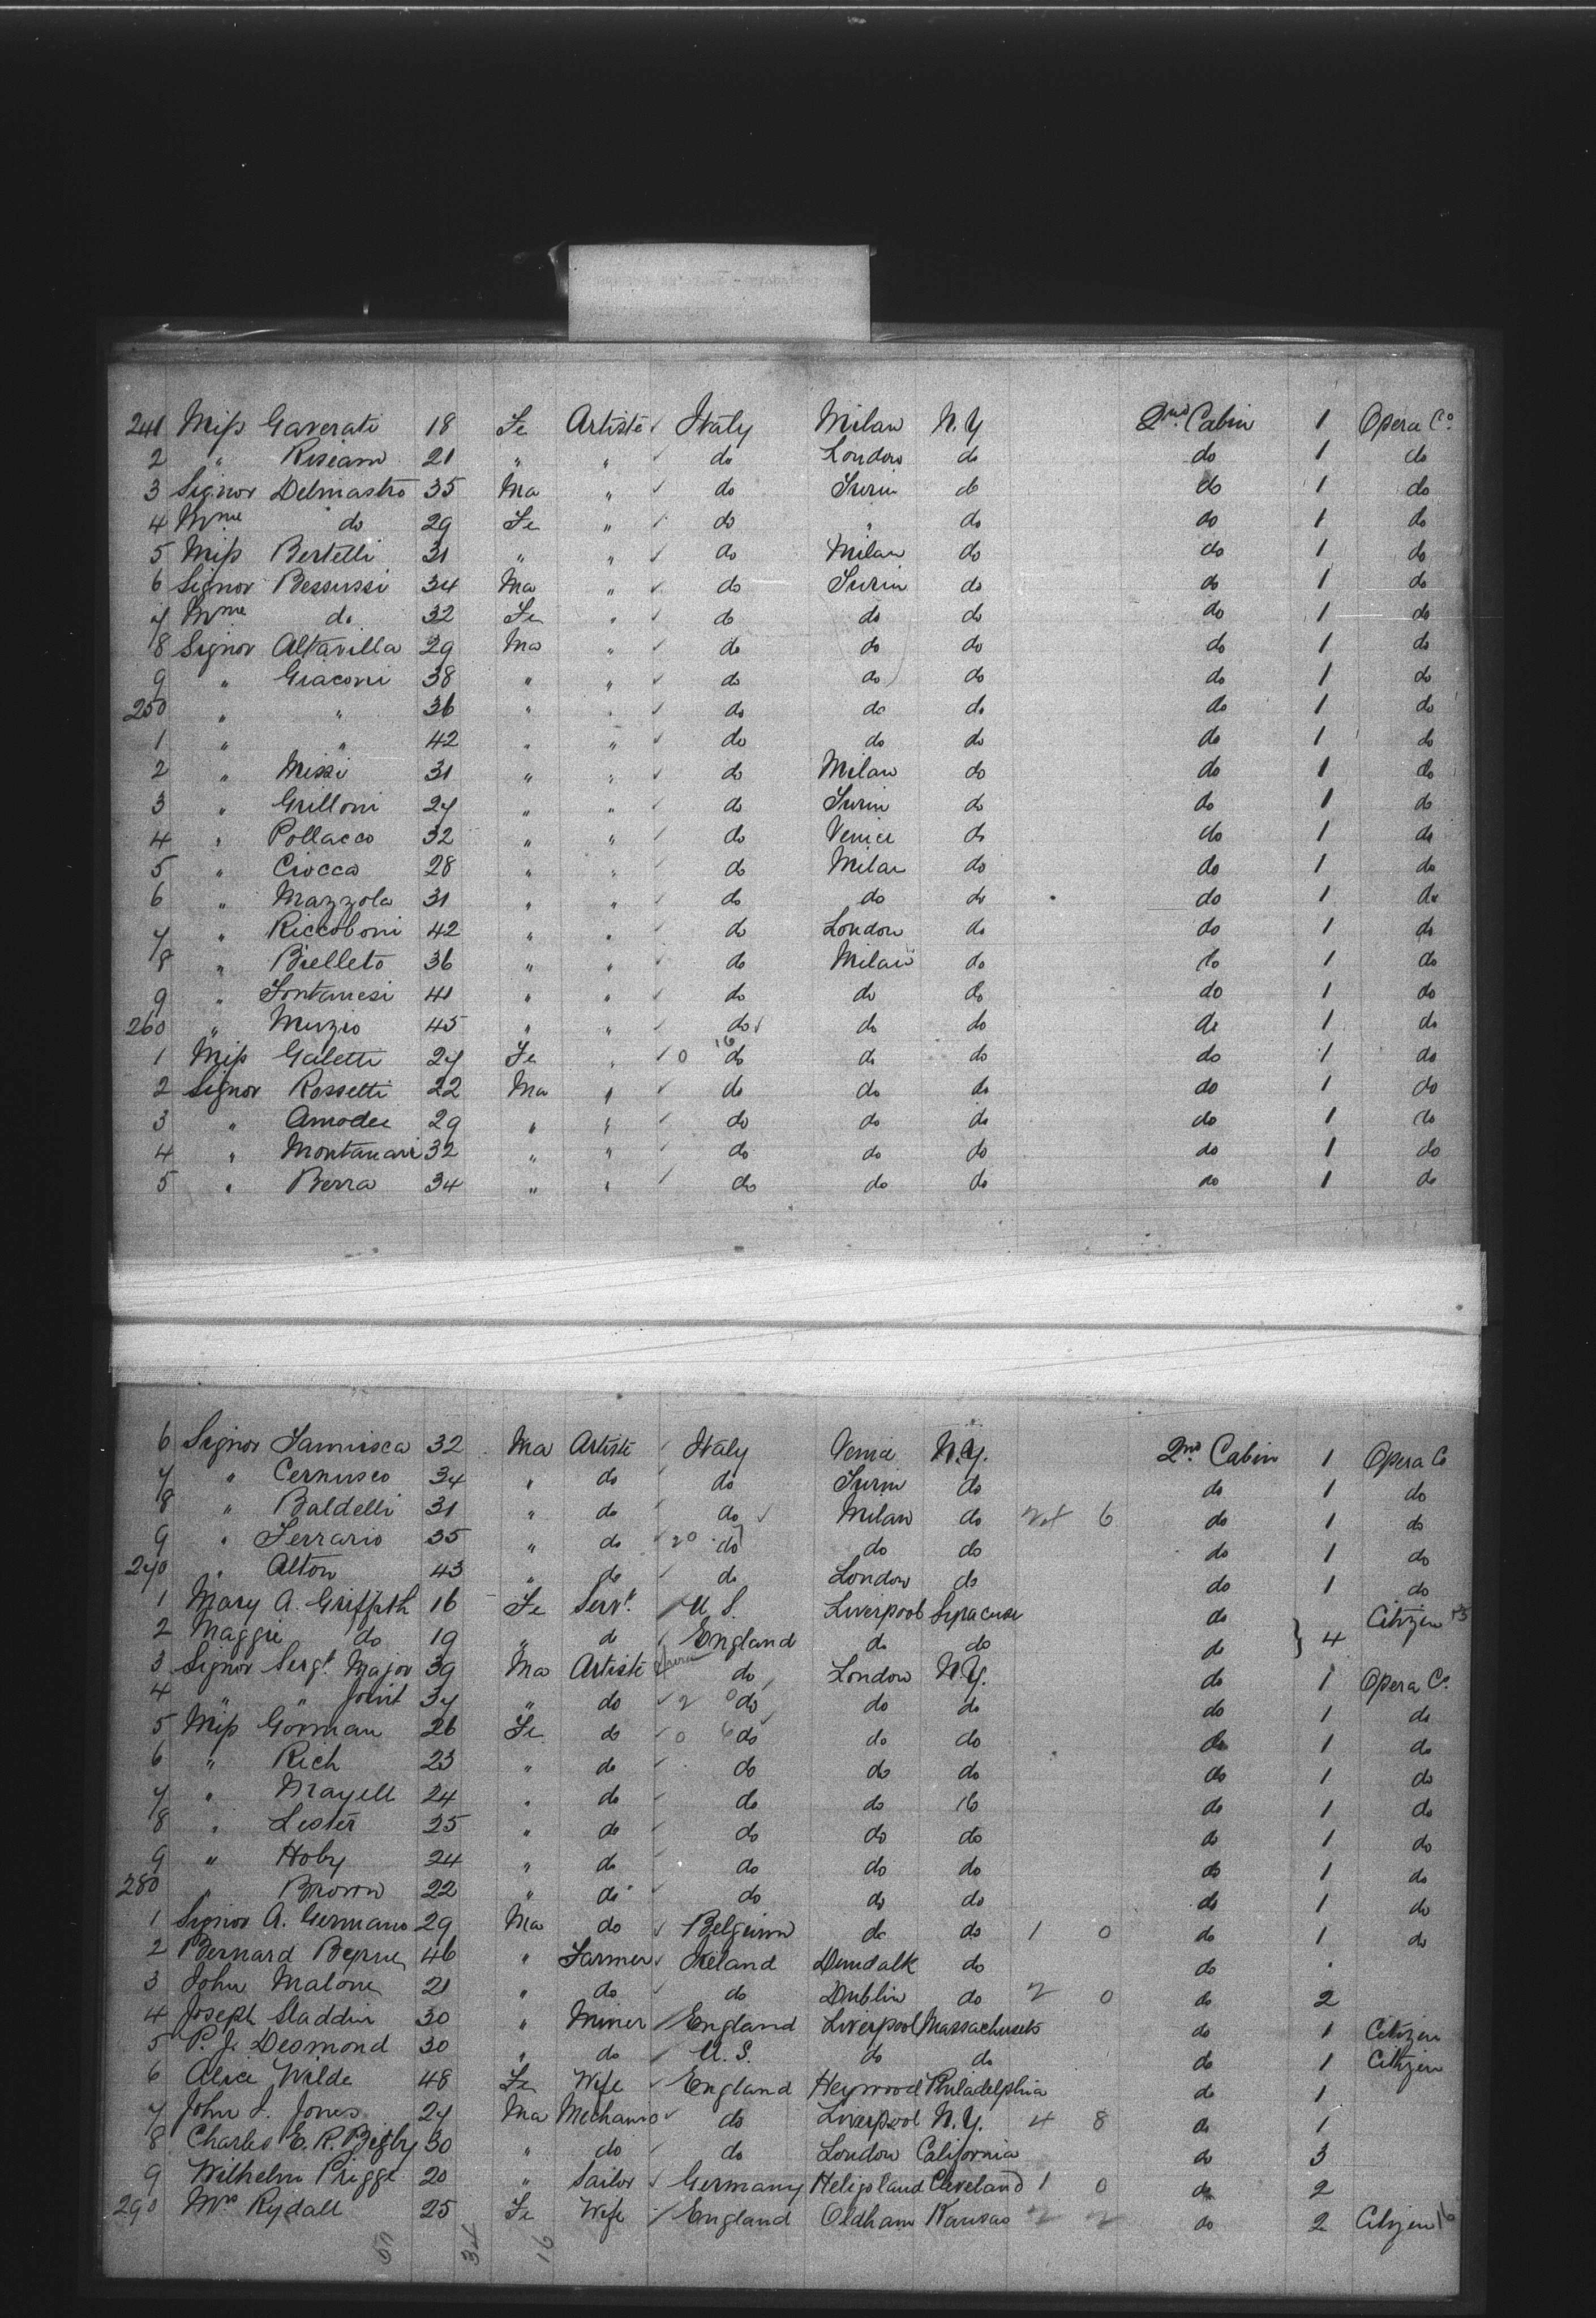 241 Miss Gaverati 18 Fe Artiste Italy Milan N.Y 2nd Cabin 1 Opera Co
2 " 21 " " do London do do 1 do
3 Signor Delmastro 35 Ma " do Turin do do 1 do
4 Mme do 29 Fe " do " do do 1 do
5 Miss Bertelli 31 " " do Milan do do 1 do
6 Signor Bessussi 34 Ma " do Turin do do 1 do
7 Mme do 32 Fe " do do do do 1 do
8 Signor Altavilla 29 Ma " do do do do 1 do
9 " Giaconi 38 " " do do do do 1 do
250 " " 36 " " do do do do 1 do
1 " " 42 " " do do do do 1 do
2 " Missi 31 " " do Milan do do 1 do
3 " Grilloni 27 " " do Turin do do 1 do
4 " Pollacco 32 " " do Venice do do 1 do
5 " Ciocca 28 " " do Milan do do 1 do
6 " Mazzola 31 " " do do do do 1 do
7 " Riccoboni 42 " " do London do do 1 do
8 " Bielleto 36 " " do Milan do do 1 do
9 " Fontanesi 41 " " do do do do 1 do
260 " Muzio 45 " " do do do do 1 do
1 Miss Galetti 27 Fe " 0 16 do do do do 1 do
2 Signor Rossetti 22 Ma " do do do do 1 do
3 " Amodei 29 " " do do do do 1 do
4 " Montanari 32 " " do do do do 1 do
5 " Berra 34 " " do do do do 1 do
6 Signor Tamisca 32 Ma Artiste Italy Venice N.Y. 2nd Cabin 1 Opera Co
7 " Cernusco 34 " do do Turin do do 1 do
8 " Baldelli 31 " do do Milan do 6 do 1 do
9 " Ferrario 35 " do 20 do do do do 1 do
270 " Alton 43 " do do London do do 1 do
1 Mary A. Griffith 16 Fe Servt U S. Liverpool Syracuse do Citizen
2 Maggie do 19 " do England do do do } 4
3 Signor Sergt Major 39 Ma Artiste do London N.Y. do 1 Opera Co
4 " " Joint 37 " do 2 0 do do do do 1 do
5 Miss Gorman 26 Fe do 0 6 do do do do 1 do
6 " Rich 23 " do do do do do 1 do
7 " Mayell 24 " do do do do do 1 do
8 " Lester 25 " do do do do do 1 do
9 " Hoby 24 " do do do do do 1 do
280 " Brown 22 " do do do do do 1 do
1 Signor A. Germano 29 Ma do Belgium do do 1 0 do 1 do
2 Bernard Byrne 46 " Farmer Ireland Dundalk do do
3 John Malone 21 " do do Dublin do 2 0 do 2
4 Joseph Sladdin 30 " Miner England Liverpool Massachusets do 1 Citizen
5 P. J. Desmond 30 " do U. S. do do do 1 Citizen
6 Alice Wilde 48 Fe Wife England Heywood Philadelphia do 1
7 John J. Jones 27 Ma Mechanic do Liverpool N.Y. 4 8 do 1
8 Charles E. R. Bigby 30 " do do London California do 3
9 Wilhelm Prigge 20 " Sailor Germany Heligoland Cleveland 1 0 do 2
290 Mrs Rydall 25 Fe Wife England Oldham Kansas 2 2 do 2 Citizen 16
50 34 16